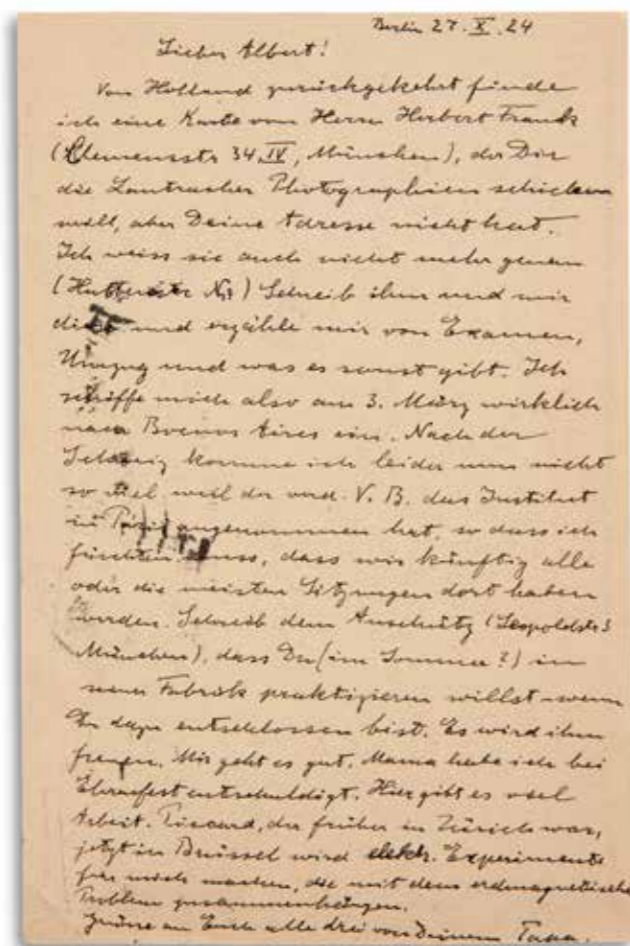 Berlin 27. X. 24
Lieber Albert!
Von Holland zurückgekehrt finde
ich eine Karte vom Herrn Herbert Franck
(Clemensstr 34, IV, München), der Dir
die Lautracher Photographien schicken
will, aber Deine Adresse nicht hat.
Ich weiss sie auch nicht mehr genau
Schreib ihm und mir
und erzähle mir von Examen,
Umzug und was es sonst gibt. Ich
schiffe mich also am 3. März wirklich
nach Buenos Aires ein. Nach der
Schweiz komme ich leider nun nicht
so viel weil der V. B. das Institut
in Paris angenommen hat, so dass ich
fürchten muss, dass wir künftig alle
oder die meisten Sitzungen dort haben
werden. Schreib dem Anschütz (Leopoldstr
München), dass Du (im Sommer?) in
seiner Fabrik praktizieren willst wenn
Du dazu entschlossen bist. Es wird ihn
freuen. Mir geht es gut. Mama habe ich bei
Ehrenfest entschuldigt. Hier gibt es viel
Arbeit. Piccard, der früher in Zürich war,
jetzt in Brüssel wird elektr. Experimente
für mich machen, die mit dem erdmagnetischen
Problem zusammenhängen.
Grüsse an Euch alle drei von Deinem Papa.